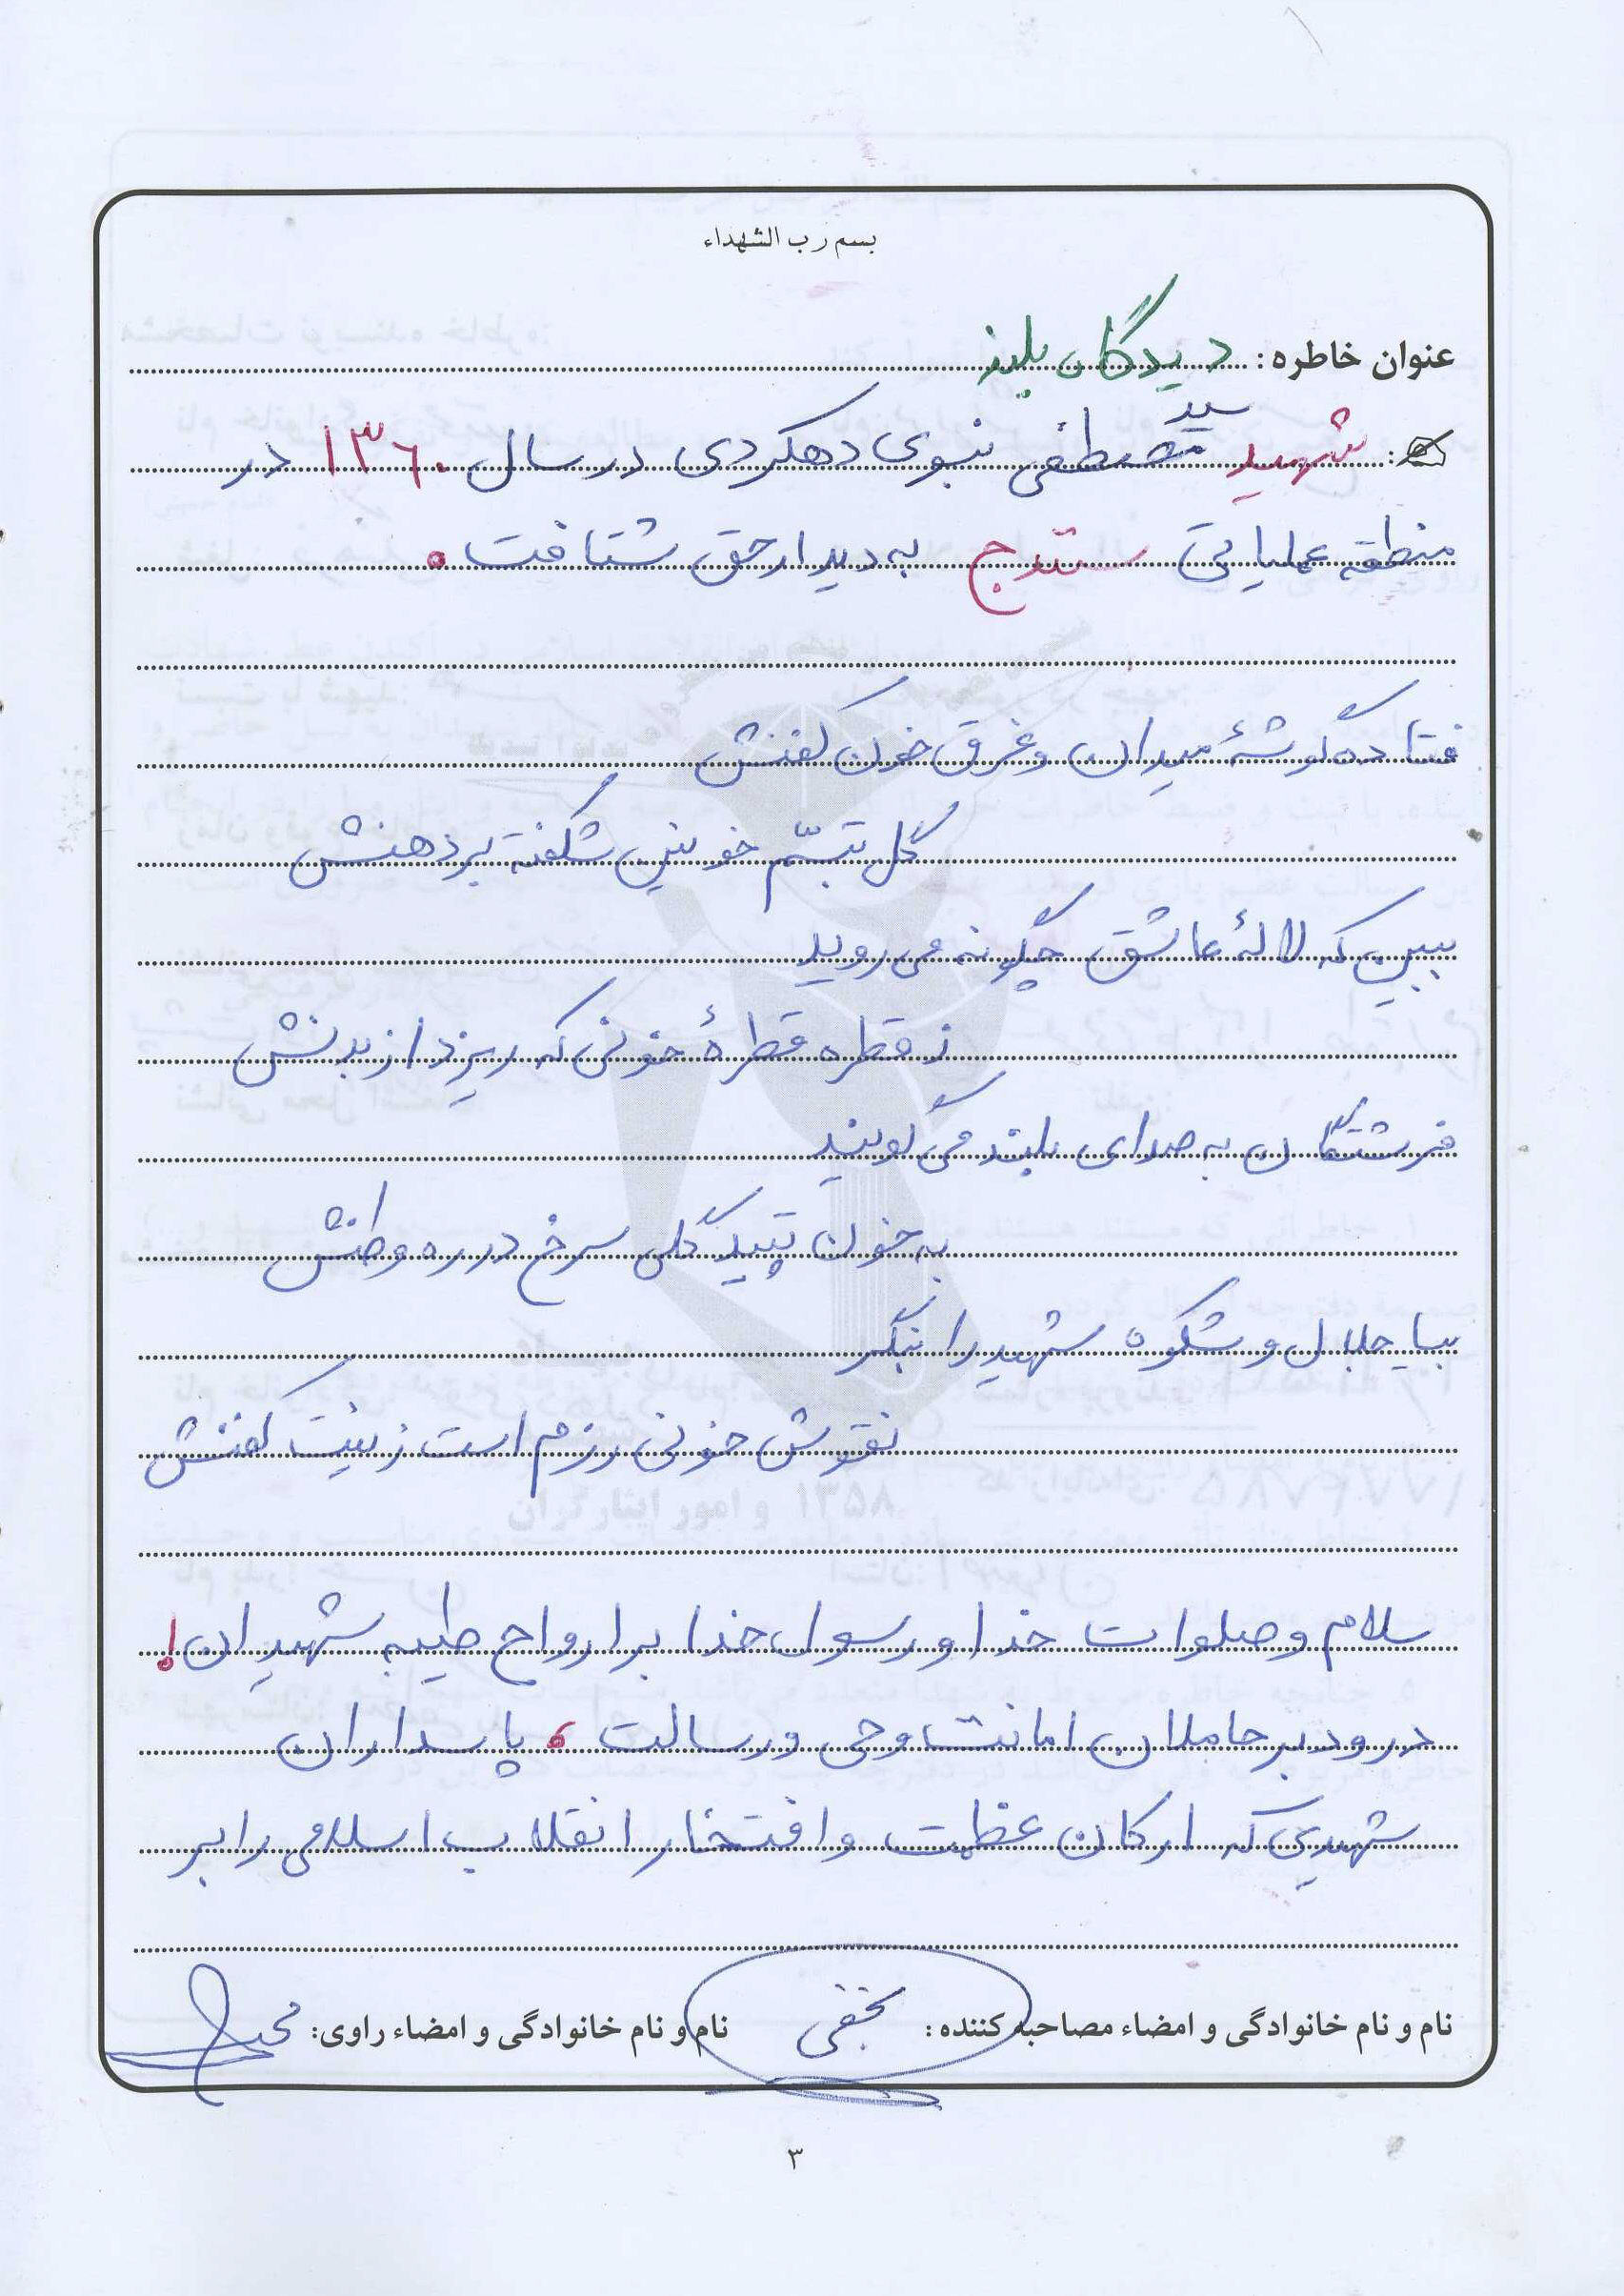 بسم رب الشهداء
عنوان خاطره: دیدگان بلند
شهید سید مصطفی نبوی دهکردی در سال ۱۳۶۰ در
منطقه عملیاتی سنندج به دیدار حق شتافت.
فتاده گوشهٔ میدان و غرق خون کفنش
گل تبسّم خونین شکفته بر دهنش
ببین که لالهٔ عاشق چگونه می روید
ز قطره قطرهٔ خونی که ریزد از بدنش
فرشتگان به صدای بلند می گویند
به خون تپید گلی سرخ در ره وطنش
بیا جلال و شکوه شهید را بنگر
نقوش خونی رزم است زینت کفنش
سلام و صلوات خدا و رسول خدا بر ارواح طیبه شهیدان!
درود بر حاملان امانت وحی و رسالت، پاسداران
شهیدی که ارکان عظمت و افتخار انقلاب اسلامی را بر
نام و نام خانوادگی و امضاء مصاحبه کننده: نجفی نام و نام خانوادگی و امضاء راوی:
۳